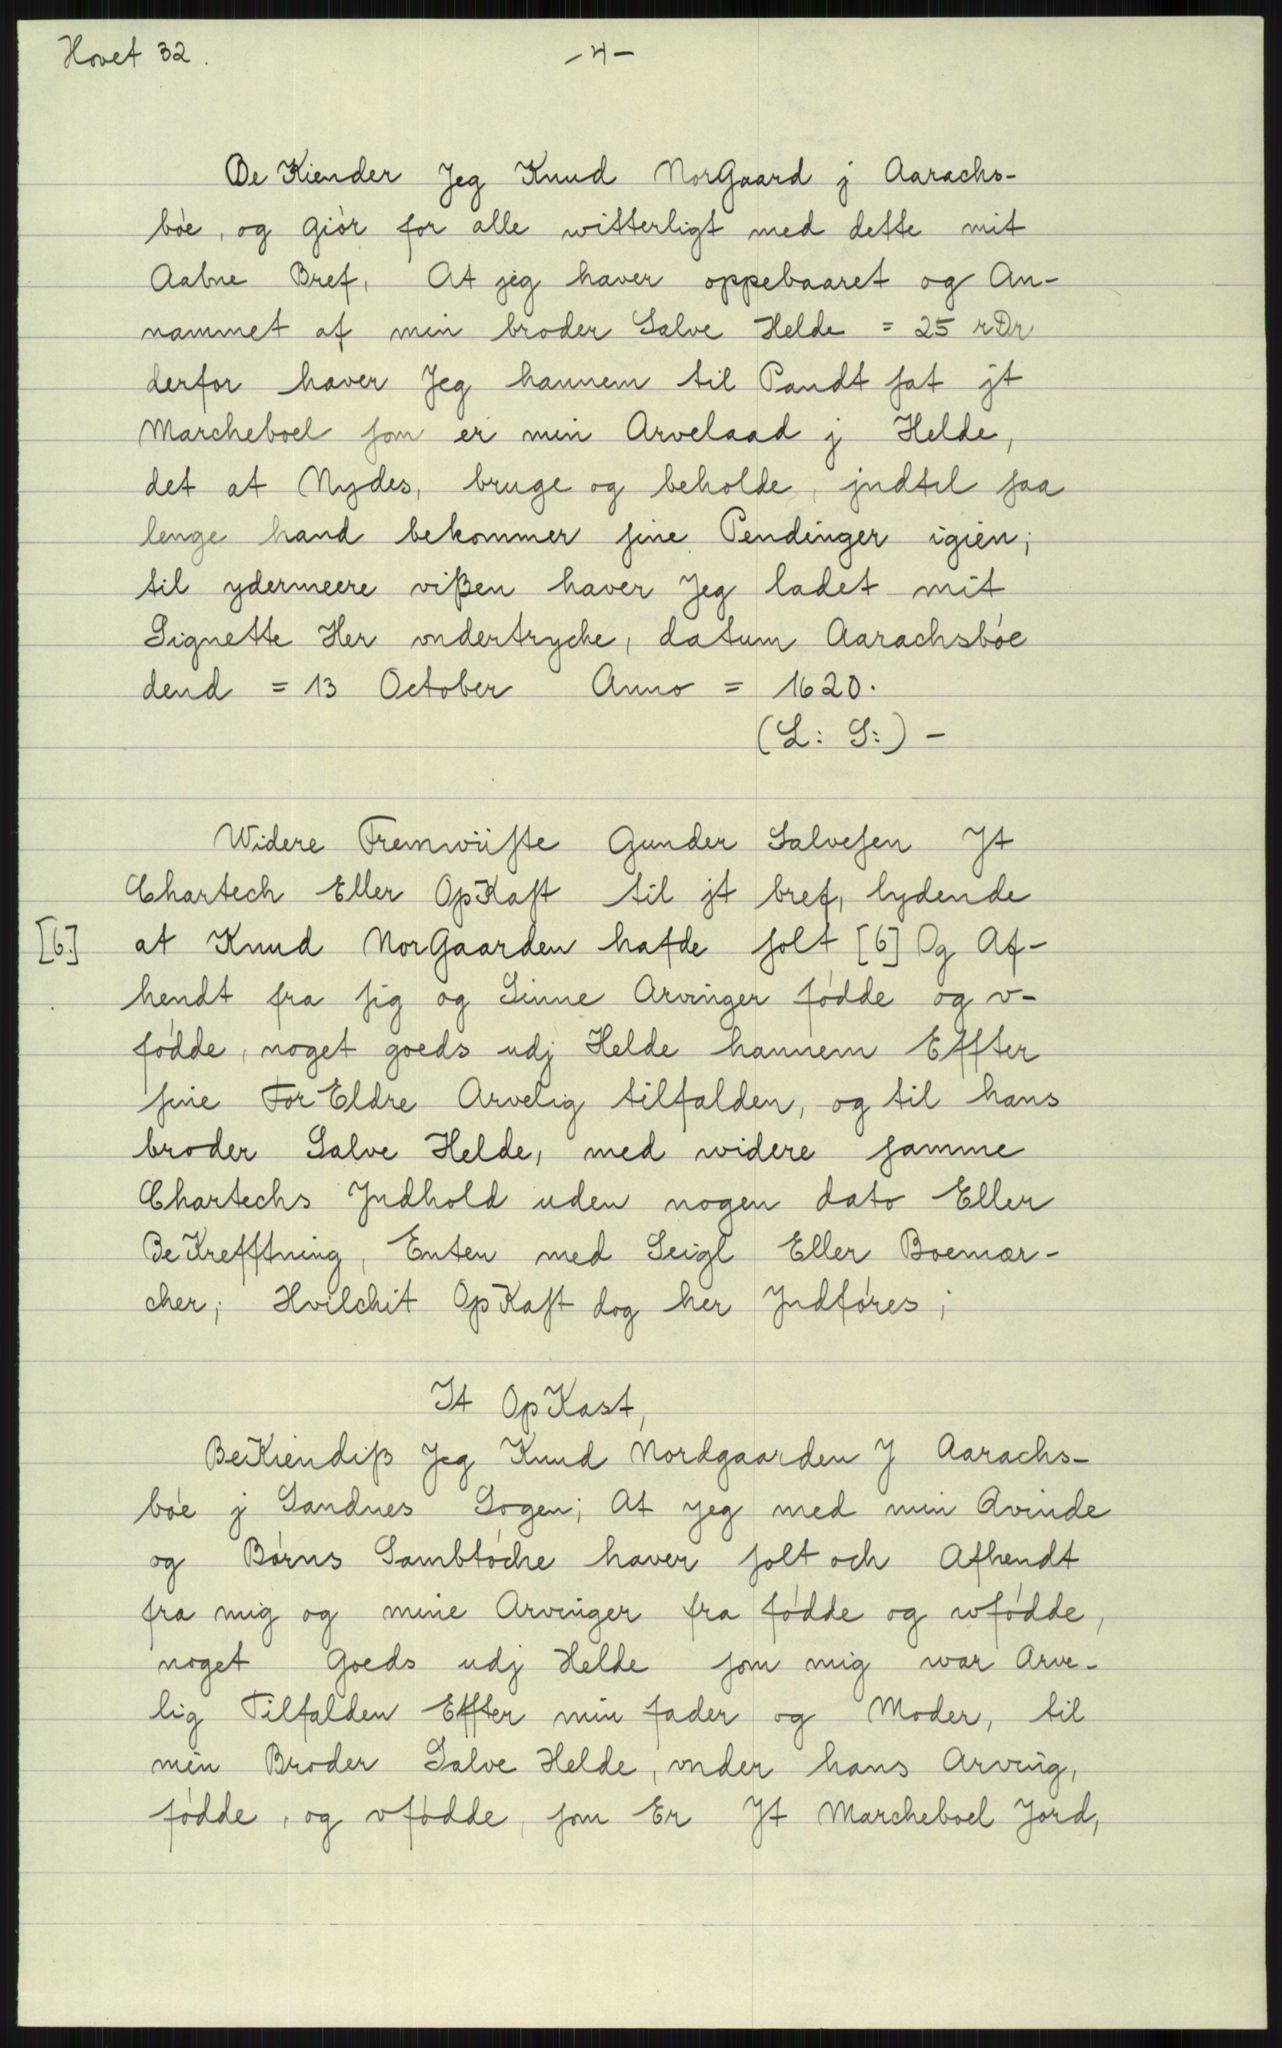 Hovet 32.
- 4 -
Be Kiender Jeg Knud NorGaard j Aarachs-
bóe, og giór for alle witterligt med dette mit
Aabne Bref, At jeg haver oppebaaret og An-
nammet af min broder Salve Helde = 25 rDr
derfor haver Jeg hannem til Pandt sat jt
Marcheboel som er min Arvelaad j Helde,
det at Nydes, bruge og beholde, jndtil saa
lenge hand bekommer sine Pendinger igien;
til ydermeere vißen haver Jeg ladet mit
Signette Her vndertryche, datum Aarachsbóe
dend = 13 October Anno = 1620.
(L: S:) -
Widere Fremwiiste Gunder Salvesen Jt
Chartech Eller OpKast til jt bref, lydende
[6.] at Knud NorGaarden hafde solt [6] Og Af-
hendt fra sig og Sinne Arvinger fódde og v-
fódde, noget goeds udj Helde hannem Effter
sine ForEldre Arvelig tilfalden, og til hans
broder Salve Helde, med widere samme
Chartechs Jndhold uden nogen dato Eller
BeKrefftning, Enten med Seigl Eller Boemær-
cher; Hvilchit OpKast dog her Jndfóres;
It OpKast,
BeKiendiß Jeg Knud Nordgaarden J Aarachs-
bóe j Sandnes Sogen; At jeg med min Qvinde
og Bórns Sambtóche haver solt och Afhendt
fra mig og mine Arvinger fra fódde og wfódde,
noget Goeds udj Helde som mig war Arve-
lig Tilfalden Effter min fader og Moder, til
min Broder Salve Helde, vnder hans Arving,
fódde, og vfódde, som Er Jt Marcheboel Jord,